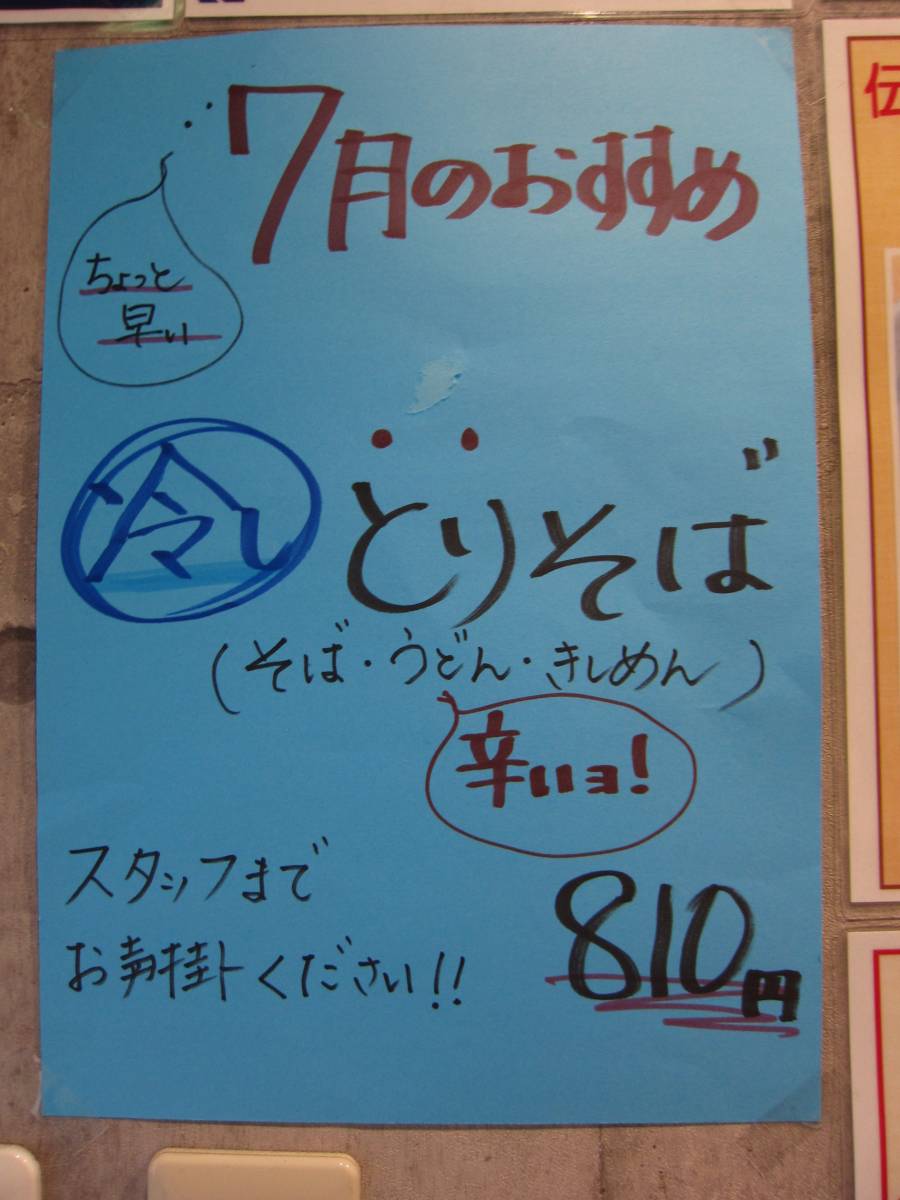 7月のおすすめ
ちょっと
早い
冷し
とりそば
(そば・うどん・きしめん)
辛いョ!
スタッフまで
お声掛ください!!
810円
伝